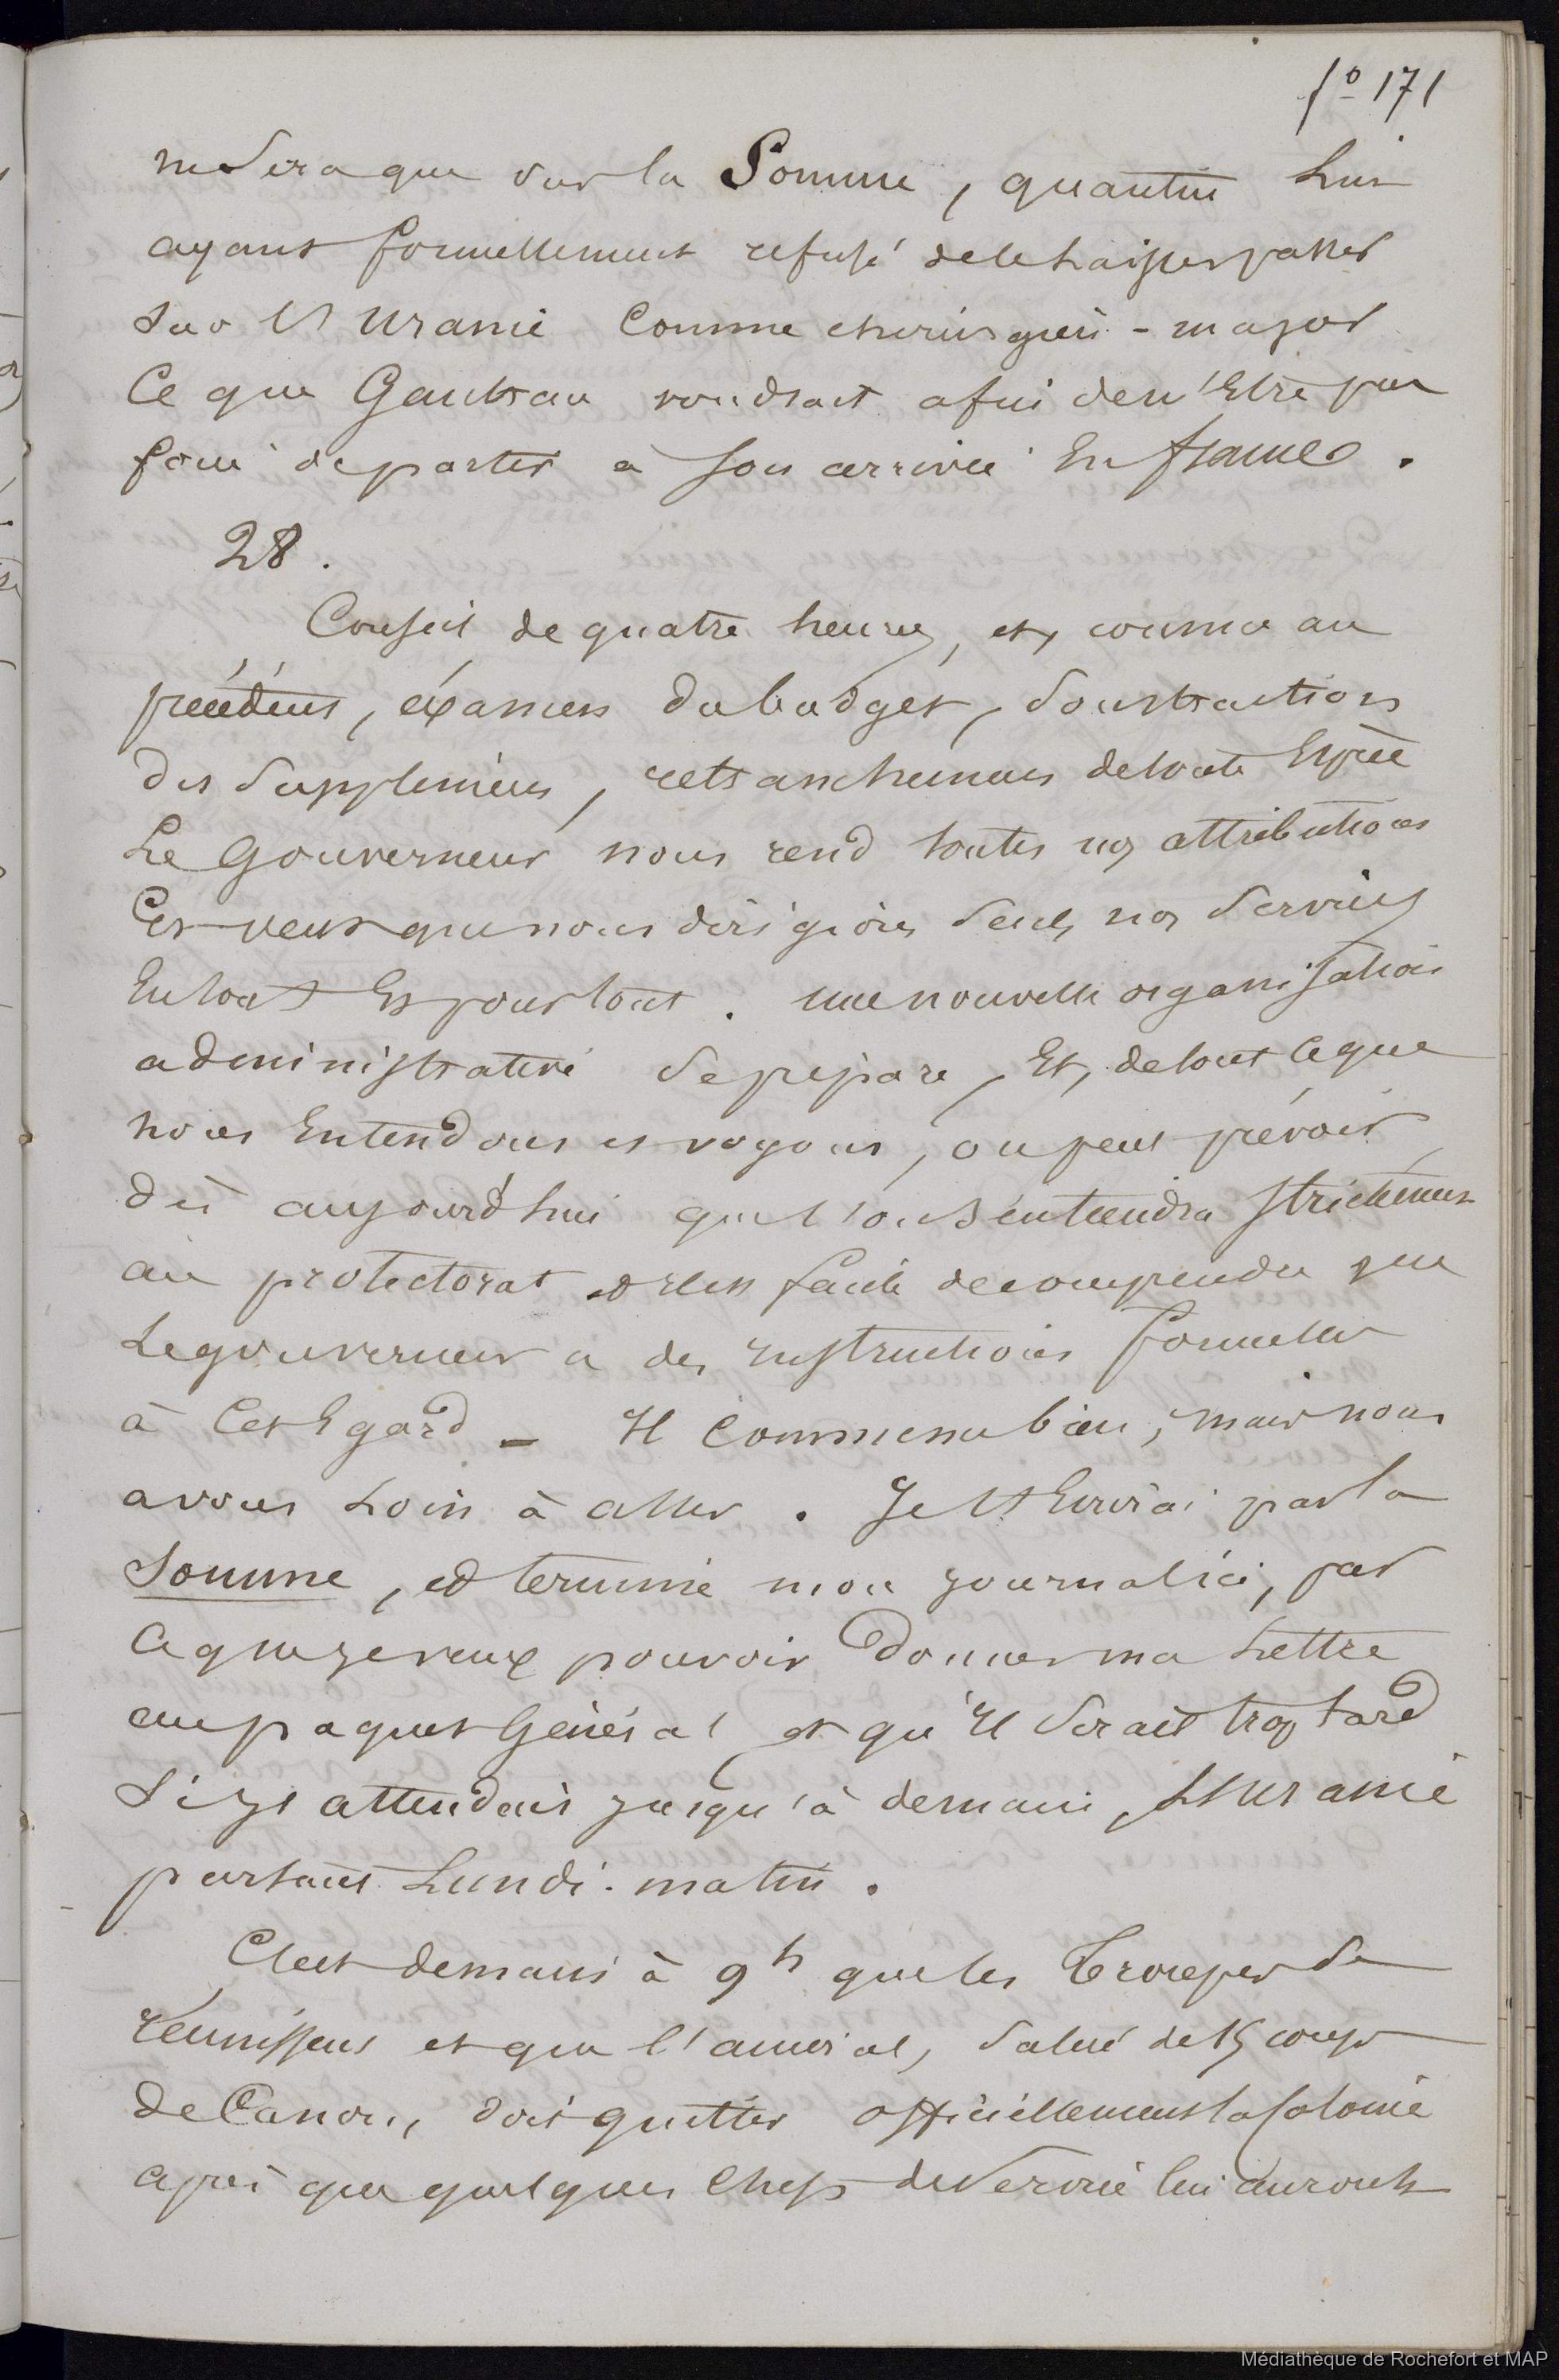 fo 171
ne sera que sur la Somme, quantin lui
ayant formellement refusé de le laisser passer
sur l'Uranie comme chirurgien-major
Ce que Gautrau voudrait afin de n'être pas
forcé de partir à son arrivée En france.
28.
Conseil de quatre heures, et, comme au
précédent, éxamen du budget, soustraction
des suppléments, retranchemens de toute Espèce
Le Gouverneur nous rend toutes nos attributions
Et veut que nous dirigions seuls nos services
En tout Et pour tout. une nouvelle organisation
administrative se prépare, Et, de tout ce que
nous Entendons et voyons, on peut prévoir
dès aujourd'hui que l'on s'en tiendra strictement
au protectorat et il est facile de comprendre que
Le gouverneur a des instructions formelles
à cet Egard - Il commence bien, mais nous
avons Loin à aller. Je t'Ecrirai par la
Somme, et termine mon journal ici, par
ce que je veux pouvoir donner ma Lettre
au paquet Général et qu'il serait trop tard
si j'attendais jusqu'à demain, l'Uranie
partant Lundi-matin.
C'est demain à 9h que les Troupes se
réunissent et que l'amiral, salué de 15 coups
de Canon, doit quitter officiellement la Colonie
après que quelques Chefs de service lui auront
Médiathèque de Rochefort et MAP